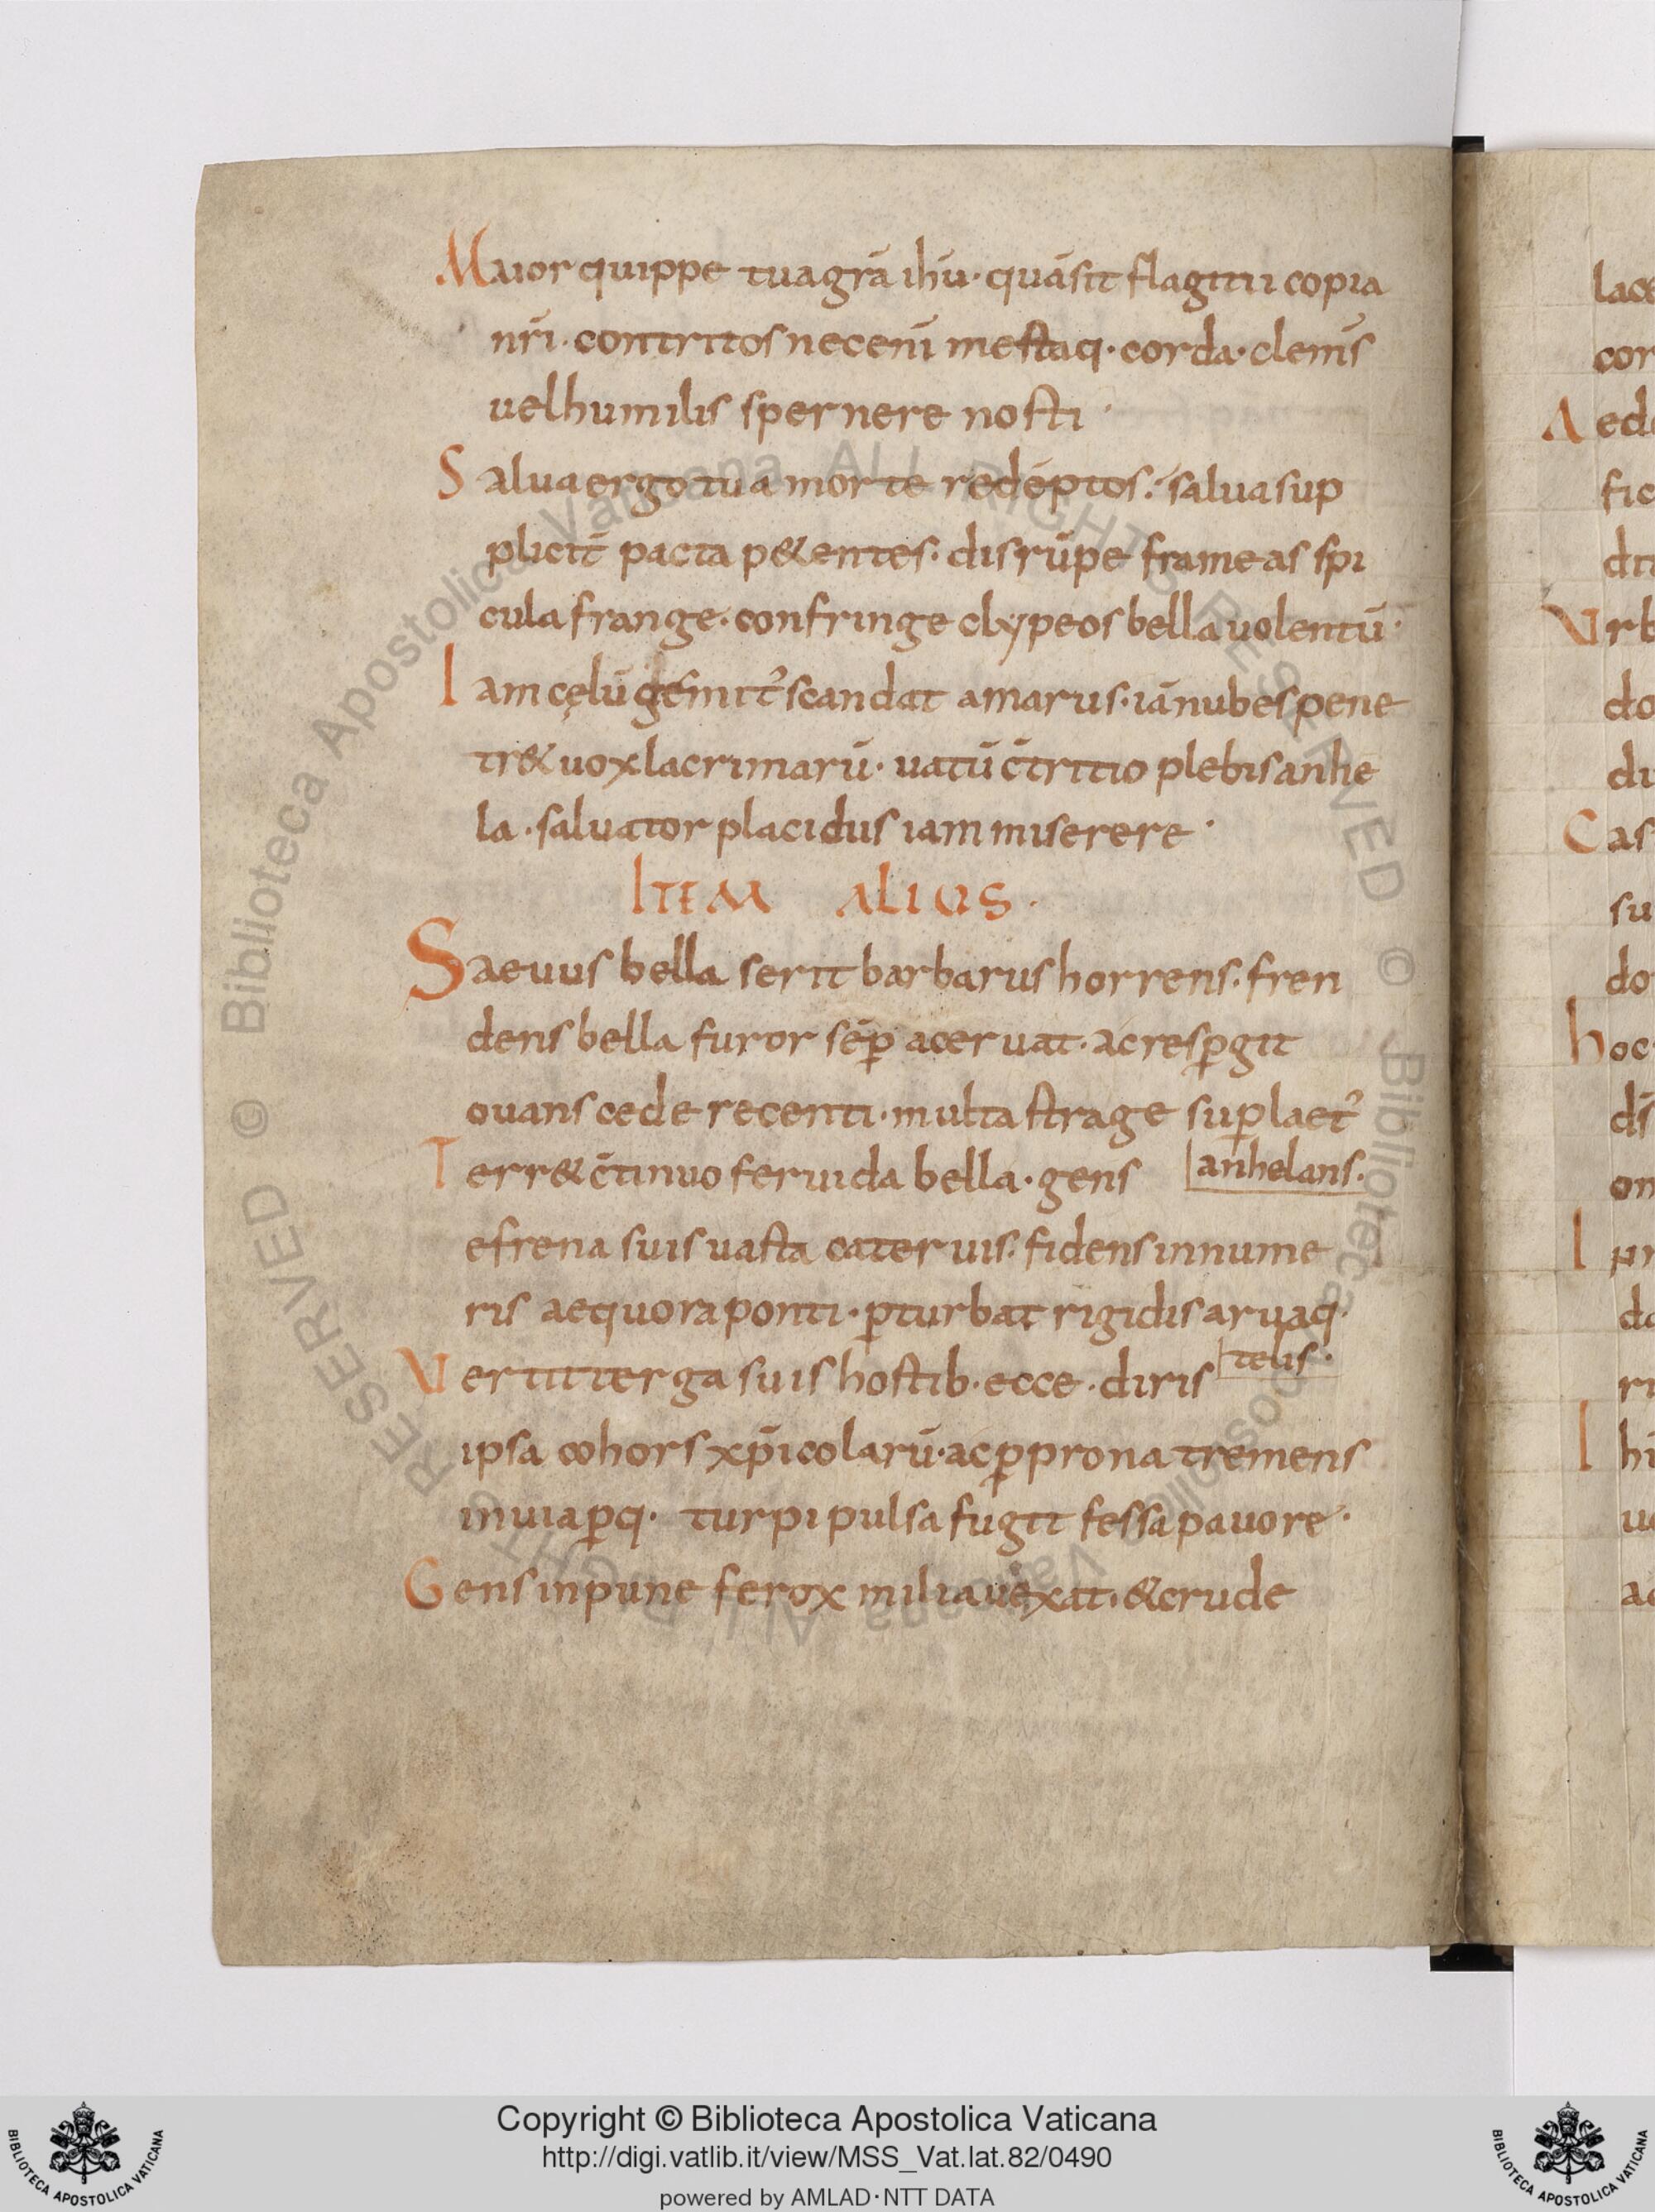 Maior quippe tua gr̄a ihū· quā sit flagitii copia
nr̄i· contritos nec enī mestaq· corda· clem̄s
uel humilis spernere nosti·
Salua ergo tua morte redēptos· salua sup
plicit̄ pacta p&entes· disrūpe frameas spi
cula frange· confringe clypeos bella uolentū·
Iam cęlū gēmit᾿ scandat amarus· iā nubes pene
tr& uox lacrimarū· uatū c̄tritio plebis anhe
la· saluator placidus iam miserere·
ITEM ALIUS·
Saeuus bella serit barbarus horrens· fren
dens bella furor sēp̄ aceruat· ac resp̄git
ouans cede recenti· multa strage sup̄ laet᾿
anhelans·
Terr& c̄tinuo feruida bella· gens
efrena suis uasta cateruis· fidens innume
ris aequora ponti· p̄turbat rigidis aruaq·
telis·
Uertit terga suis hostib· ecce· diris
ipsa cohors xp̄icolarū· ac p̄ prona tremens
inuia p̄q· turpi pulsa fugit fessa pauore·
Gens inpune ferox milia uexat· & crude
lace
cor
Aed
fic
dit
Urb
do
di
Cas
su
do
hoc
ds̄
om
I
da
ri
I hi
u
ac
Copyright © Biblioteca Apostolica Vaticana
http://digi.vatlib.it/view/MSS_Vat.lat.82/0490
powered by AMLAD·NTT DATA
BIBLIOTECA APOSTOLICA VATICANA
BIBLIOTECA APOSTOLICA VATICANA